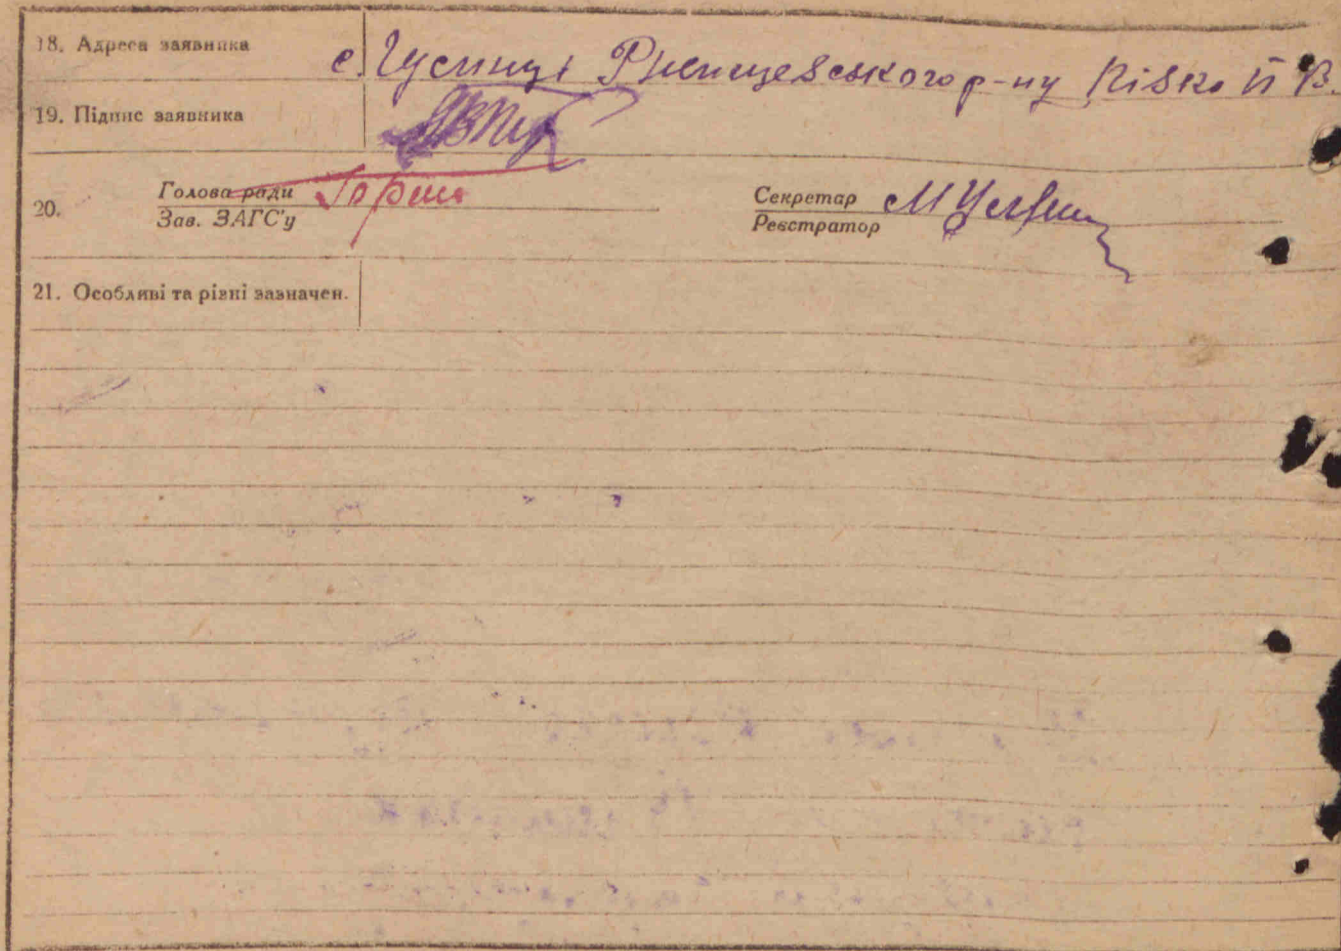 18. Адреса заявника с. Гусинці Ржищевського р-ну
19. Підпис заявника
Голова ради
20. Зав. ЗАГС'у
Секретар
Реєстратор
21. Особливі та різні зазначен.